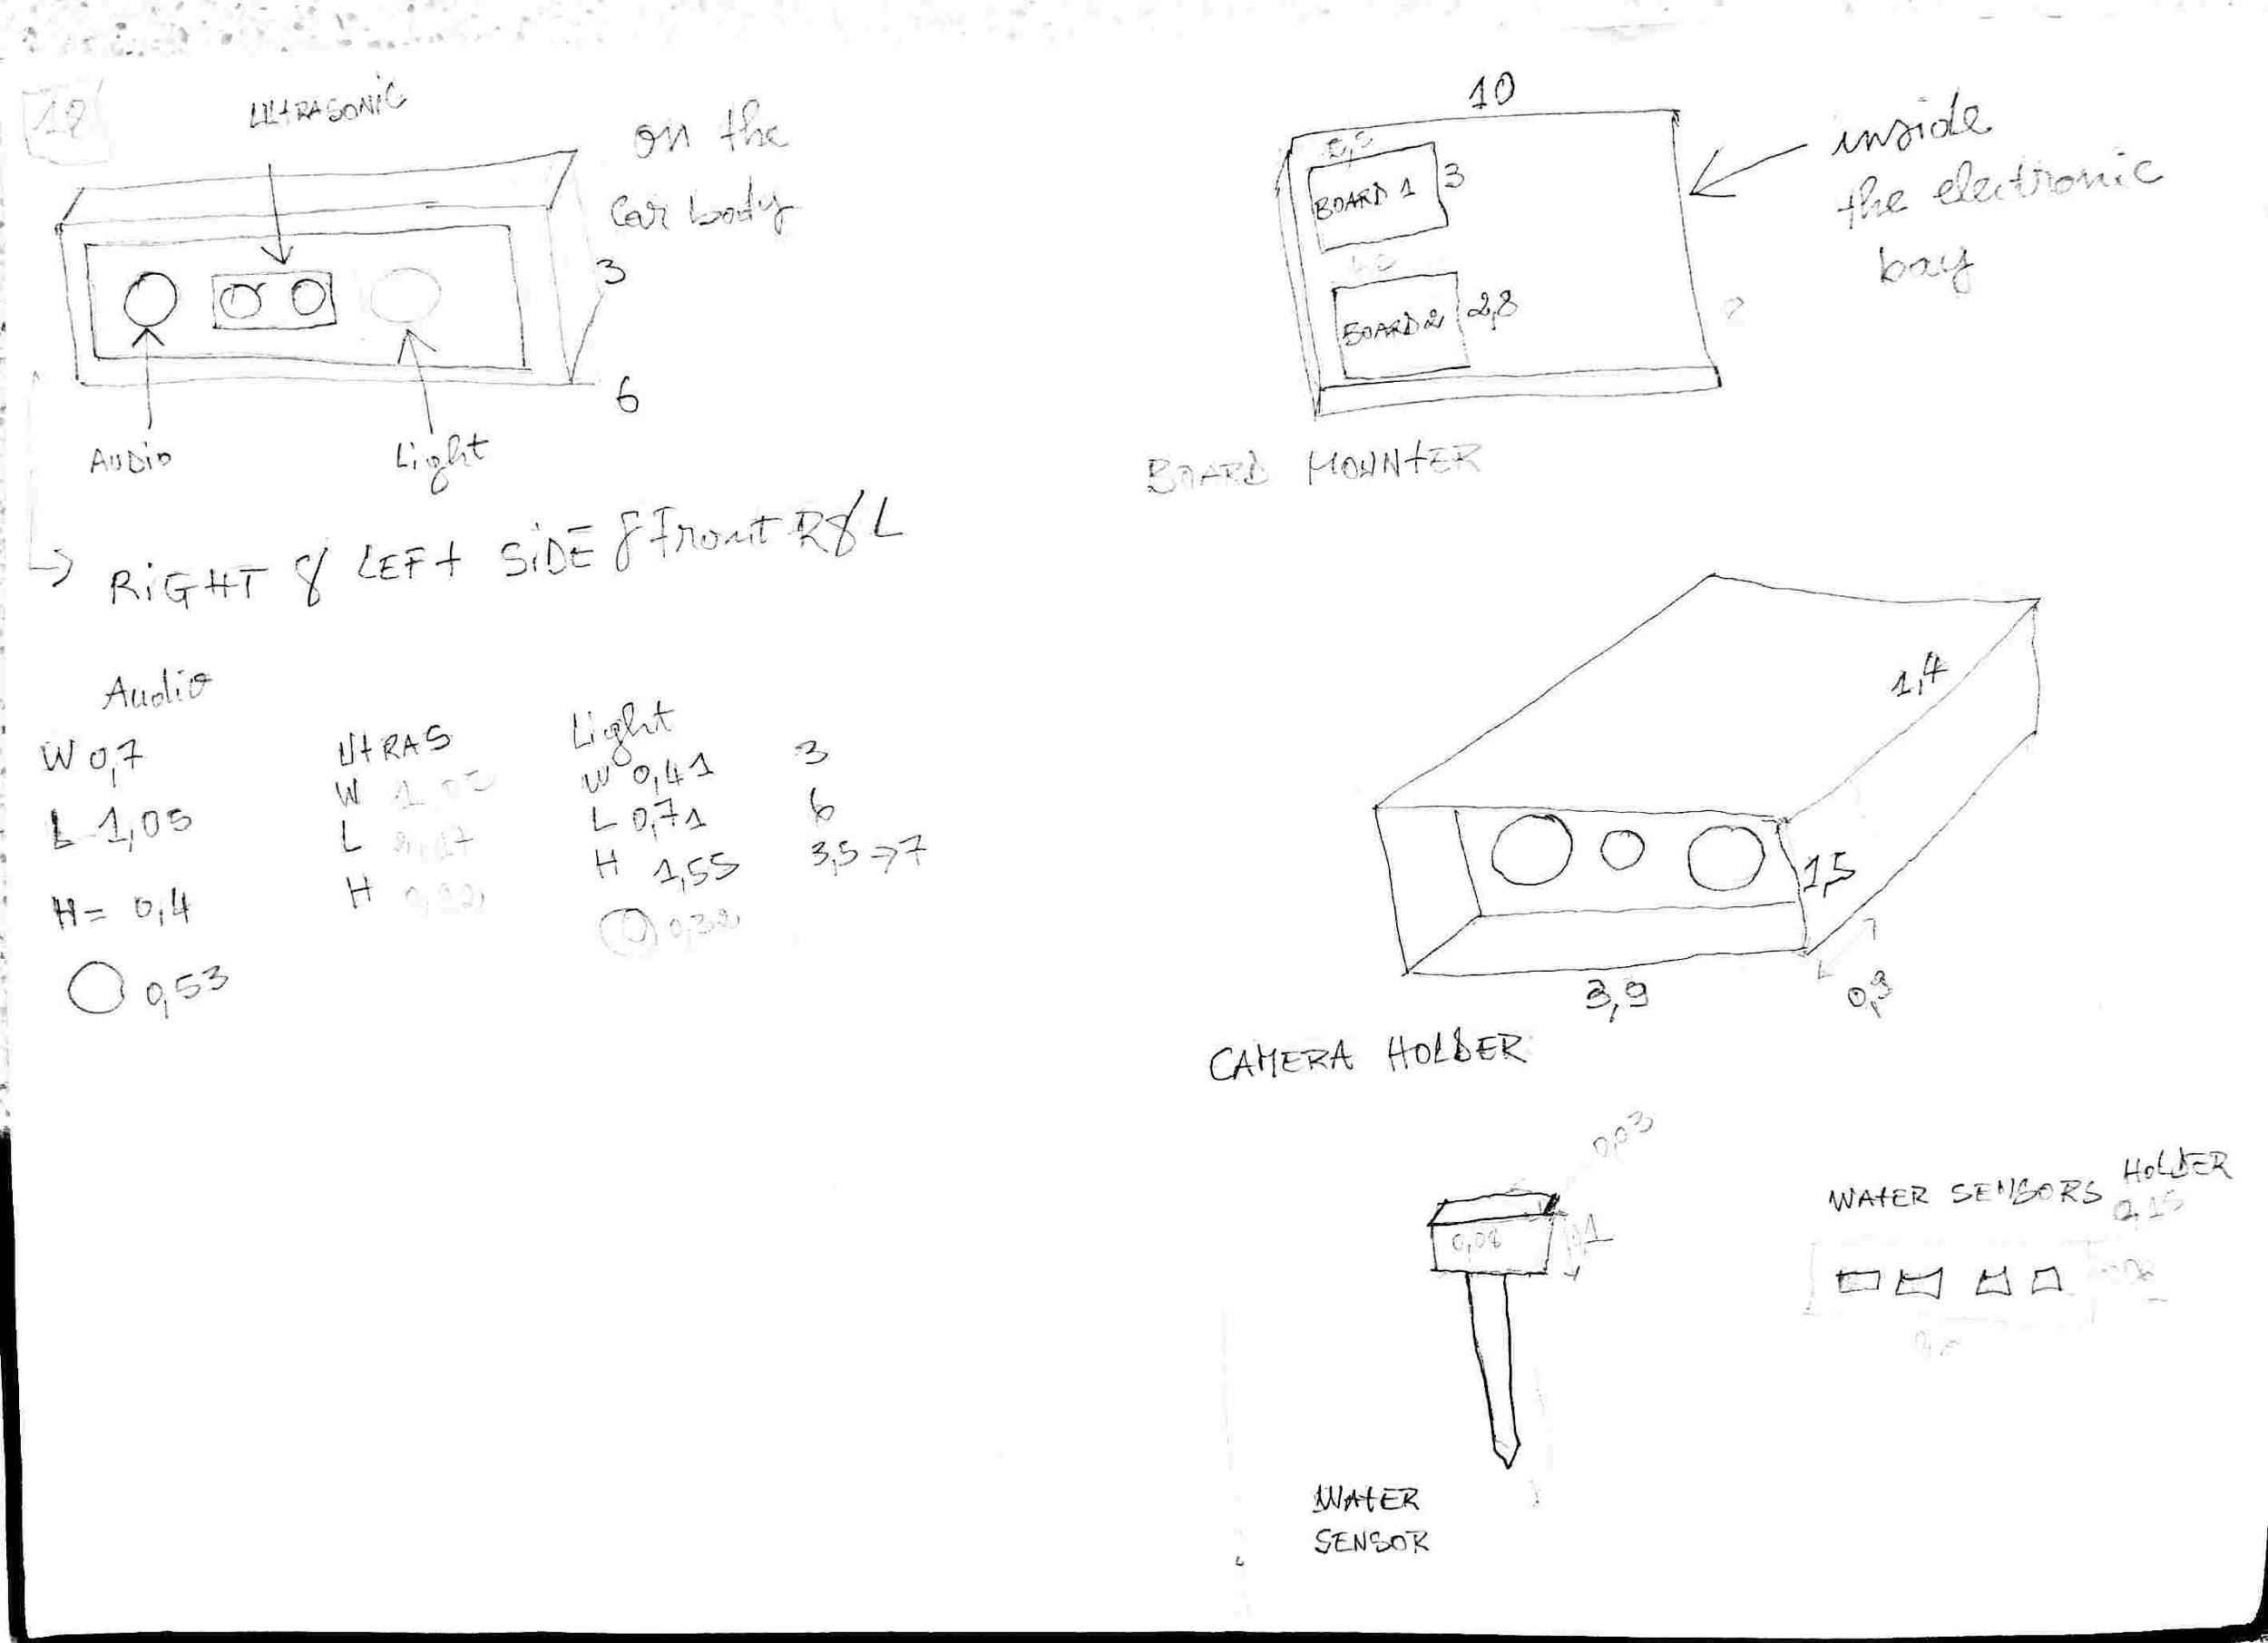 ULtRASONiC
on the
Car body
3
6
AUDiO
Light
RiGHT & LEFt SiDE & Front R&L
Audio
W 0,7
L 1,05
H= 0,4
0,53
UtRAS
W
L
H
Light
W 0,41
L 0,71
H 1,55
0,32
3
6
3,5 → 7
10
BOARD 1
3
BOARD 2
2,8
inside
the electronic
bay
BOARD MOUNtER
1,4
1,5
3,9
0,9
CAMERA HOLDER
0,03
WAtER
SENSOR
WAtER SENSORS HOLDER